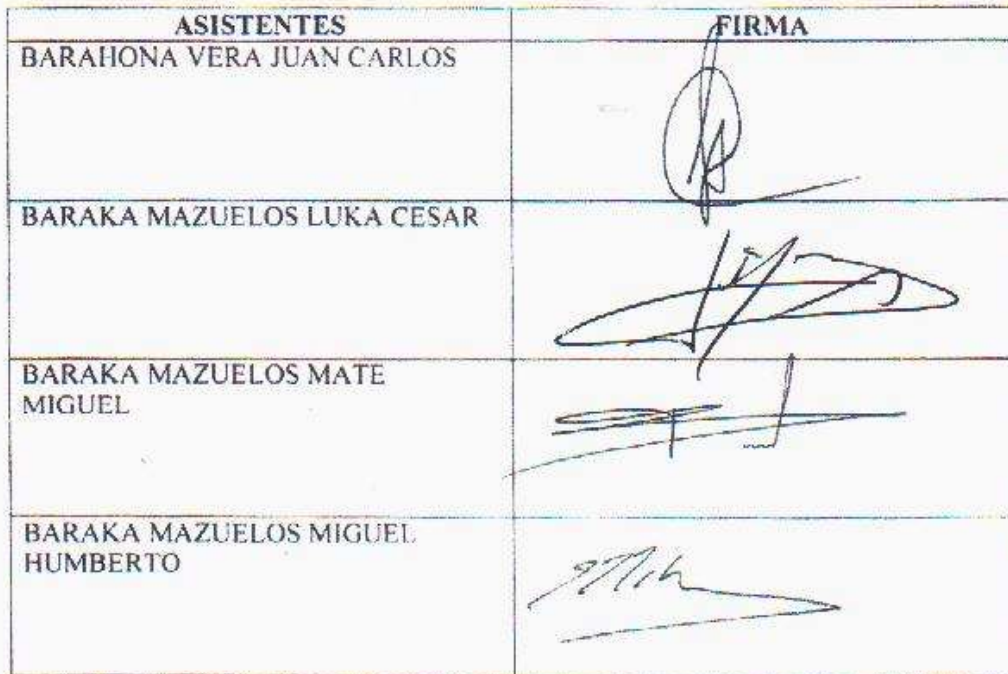 ASISTENTES FIRMA
BARAHONA VERA JUAN CARLOS
BARAKA MAZUELOS LUKA CESAR
BARAKA MAZUELOS MATE
MIGUEL
BARAKA MAZUELOS MIGUEL
HUMBERTO